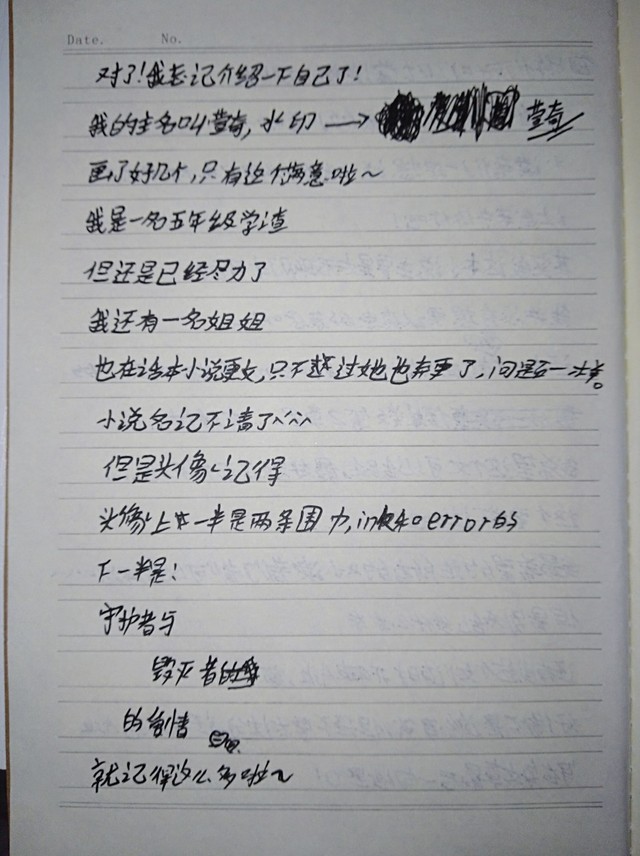 Date. No.
对了!我忘记介绍一下自己了!
我的主名叫萤奇,水印→ 萤奇
画了好几个,只有这个满意啦~
我是一名五年级学渣
但还是已经尽力了
我还有一名姐姐
也在话本小说更文,只不过她也弃更了,问是
小说名记不清了^^^
但是头像记得
头像上一半是两条围巾,ink和error的
下一半是:
守护者与
毁灭者
的爱情
就记得这么多啦~